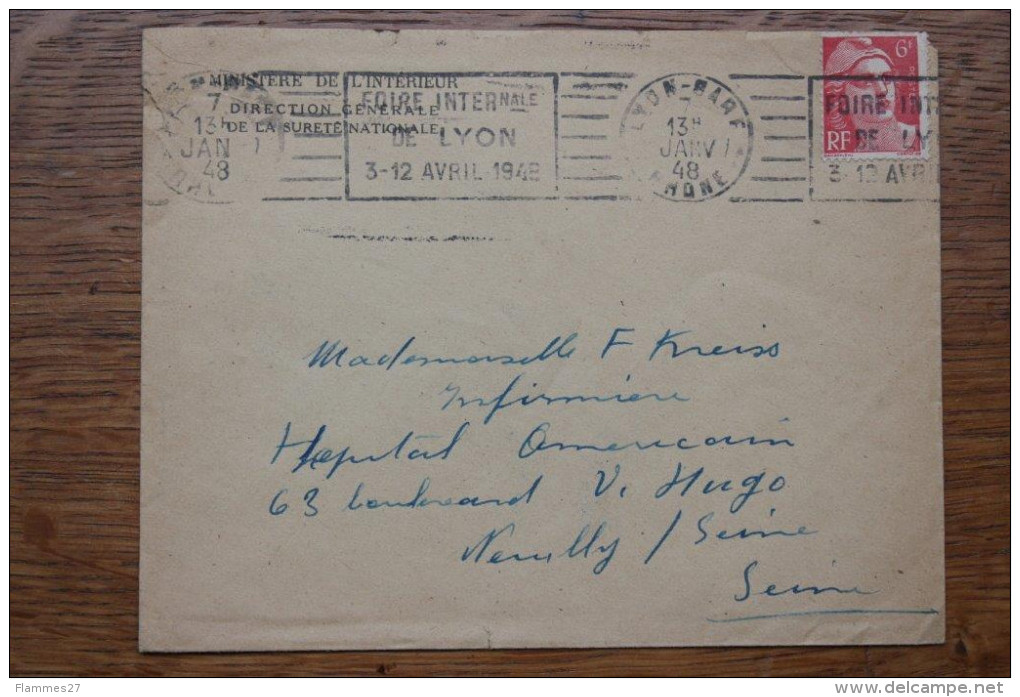 MINISTÈRE DE L'INTÉRIEUR
DIRECTION GÉNÉRALE
DE LA SURETÉ NATIONALE
7
13H
JAN
48
FOIRE INTERNALE
DE LYON
3-12 AVRIL 1948
LYON-GARE
7
13H
JANV
48
RHONE
6F
RF
FOIRE INT
DE LY
3-12 AVRI
Mademoiselle F Kreiss
Infirmière
Hopital Americain
63 boulevard V. Hugo
Neuilly / Seine
Seine
Flammes27
www.delcampe.net